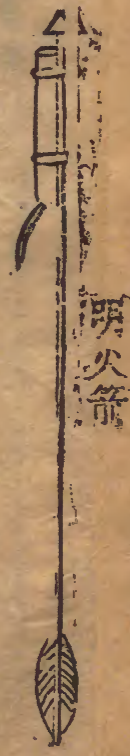 明火箭